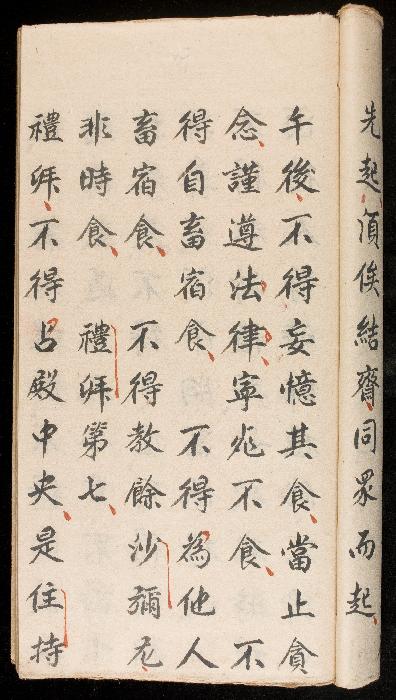 先起、湏俟結齋、同眾而起、
午後、不得妄憶其食、當止貪
念、謹遵法律、寧死不食、不
得自畜宿食、 不得為他人
畜宿食、 不得教餘沙彌尼
非時食、 禮拜第七、
禮拜、不得占殿中央、是住持